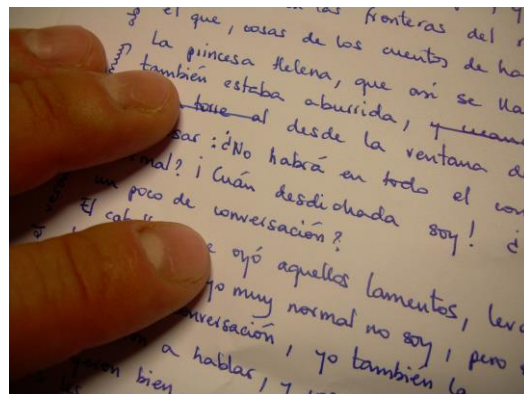 el que, cosas de los cuentos de ha
las fronteras del r
La princesa Helena, que así se lla
también estaba aburrida,
torre al desde la ventana d
sar: ¿No habrá en todo el
mal? ¡Cuán desdichada soy! ¿
un poco de conversación?
El cab
e oyó aquellos lamentos,
yo muy normal no soy, pero
nversación, yo también la
n a hablar, y
ron bien